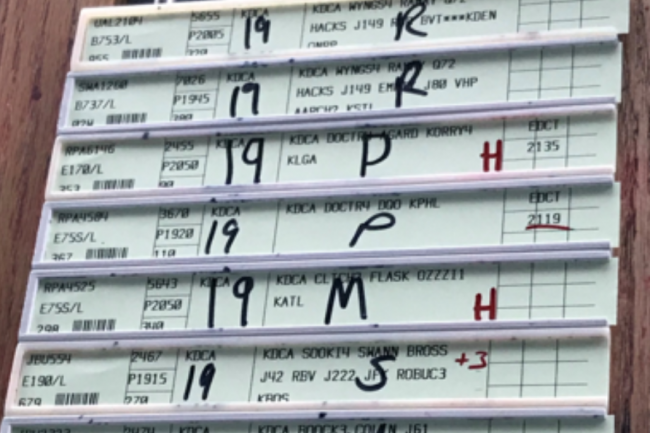 UAL2104 5655 KDCA KDCA WYNGS4 Q72
B753/L P2005 19 HACKS J149 R BVT***KDEN
SWA1260 7026 KDCA KDCA WYNGS4 Q72
B737/L P1945 19 HACKS J149 R J80 VHP
RPA6146 2455 KDCA KDCA DOCTR4 AGARD KORRY4 EDCT
E170/L P2050 19 KLGA P H 2135
353
RPA4584 3670 KDCA KDCA DOCTR4 DQO KPHL EDCT
E75S/L P1920 19 P 2119
367 110
RPA4525 5643 KDCA FLASK OZZZI1
E75S/L P2050 19 KATL M H
298 340
JBU554 2467 KDCA KDCA SOOKI4 SWANN BROSS +3
E190/L P1915 19 J42 RBV J222 JFK S ROBUC3
679 270 KBOS
J61